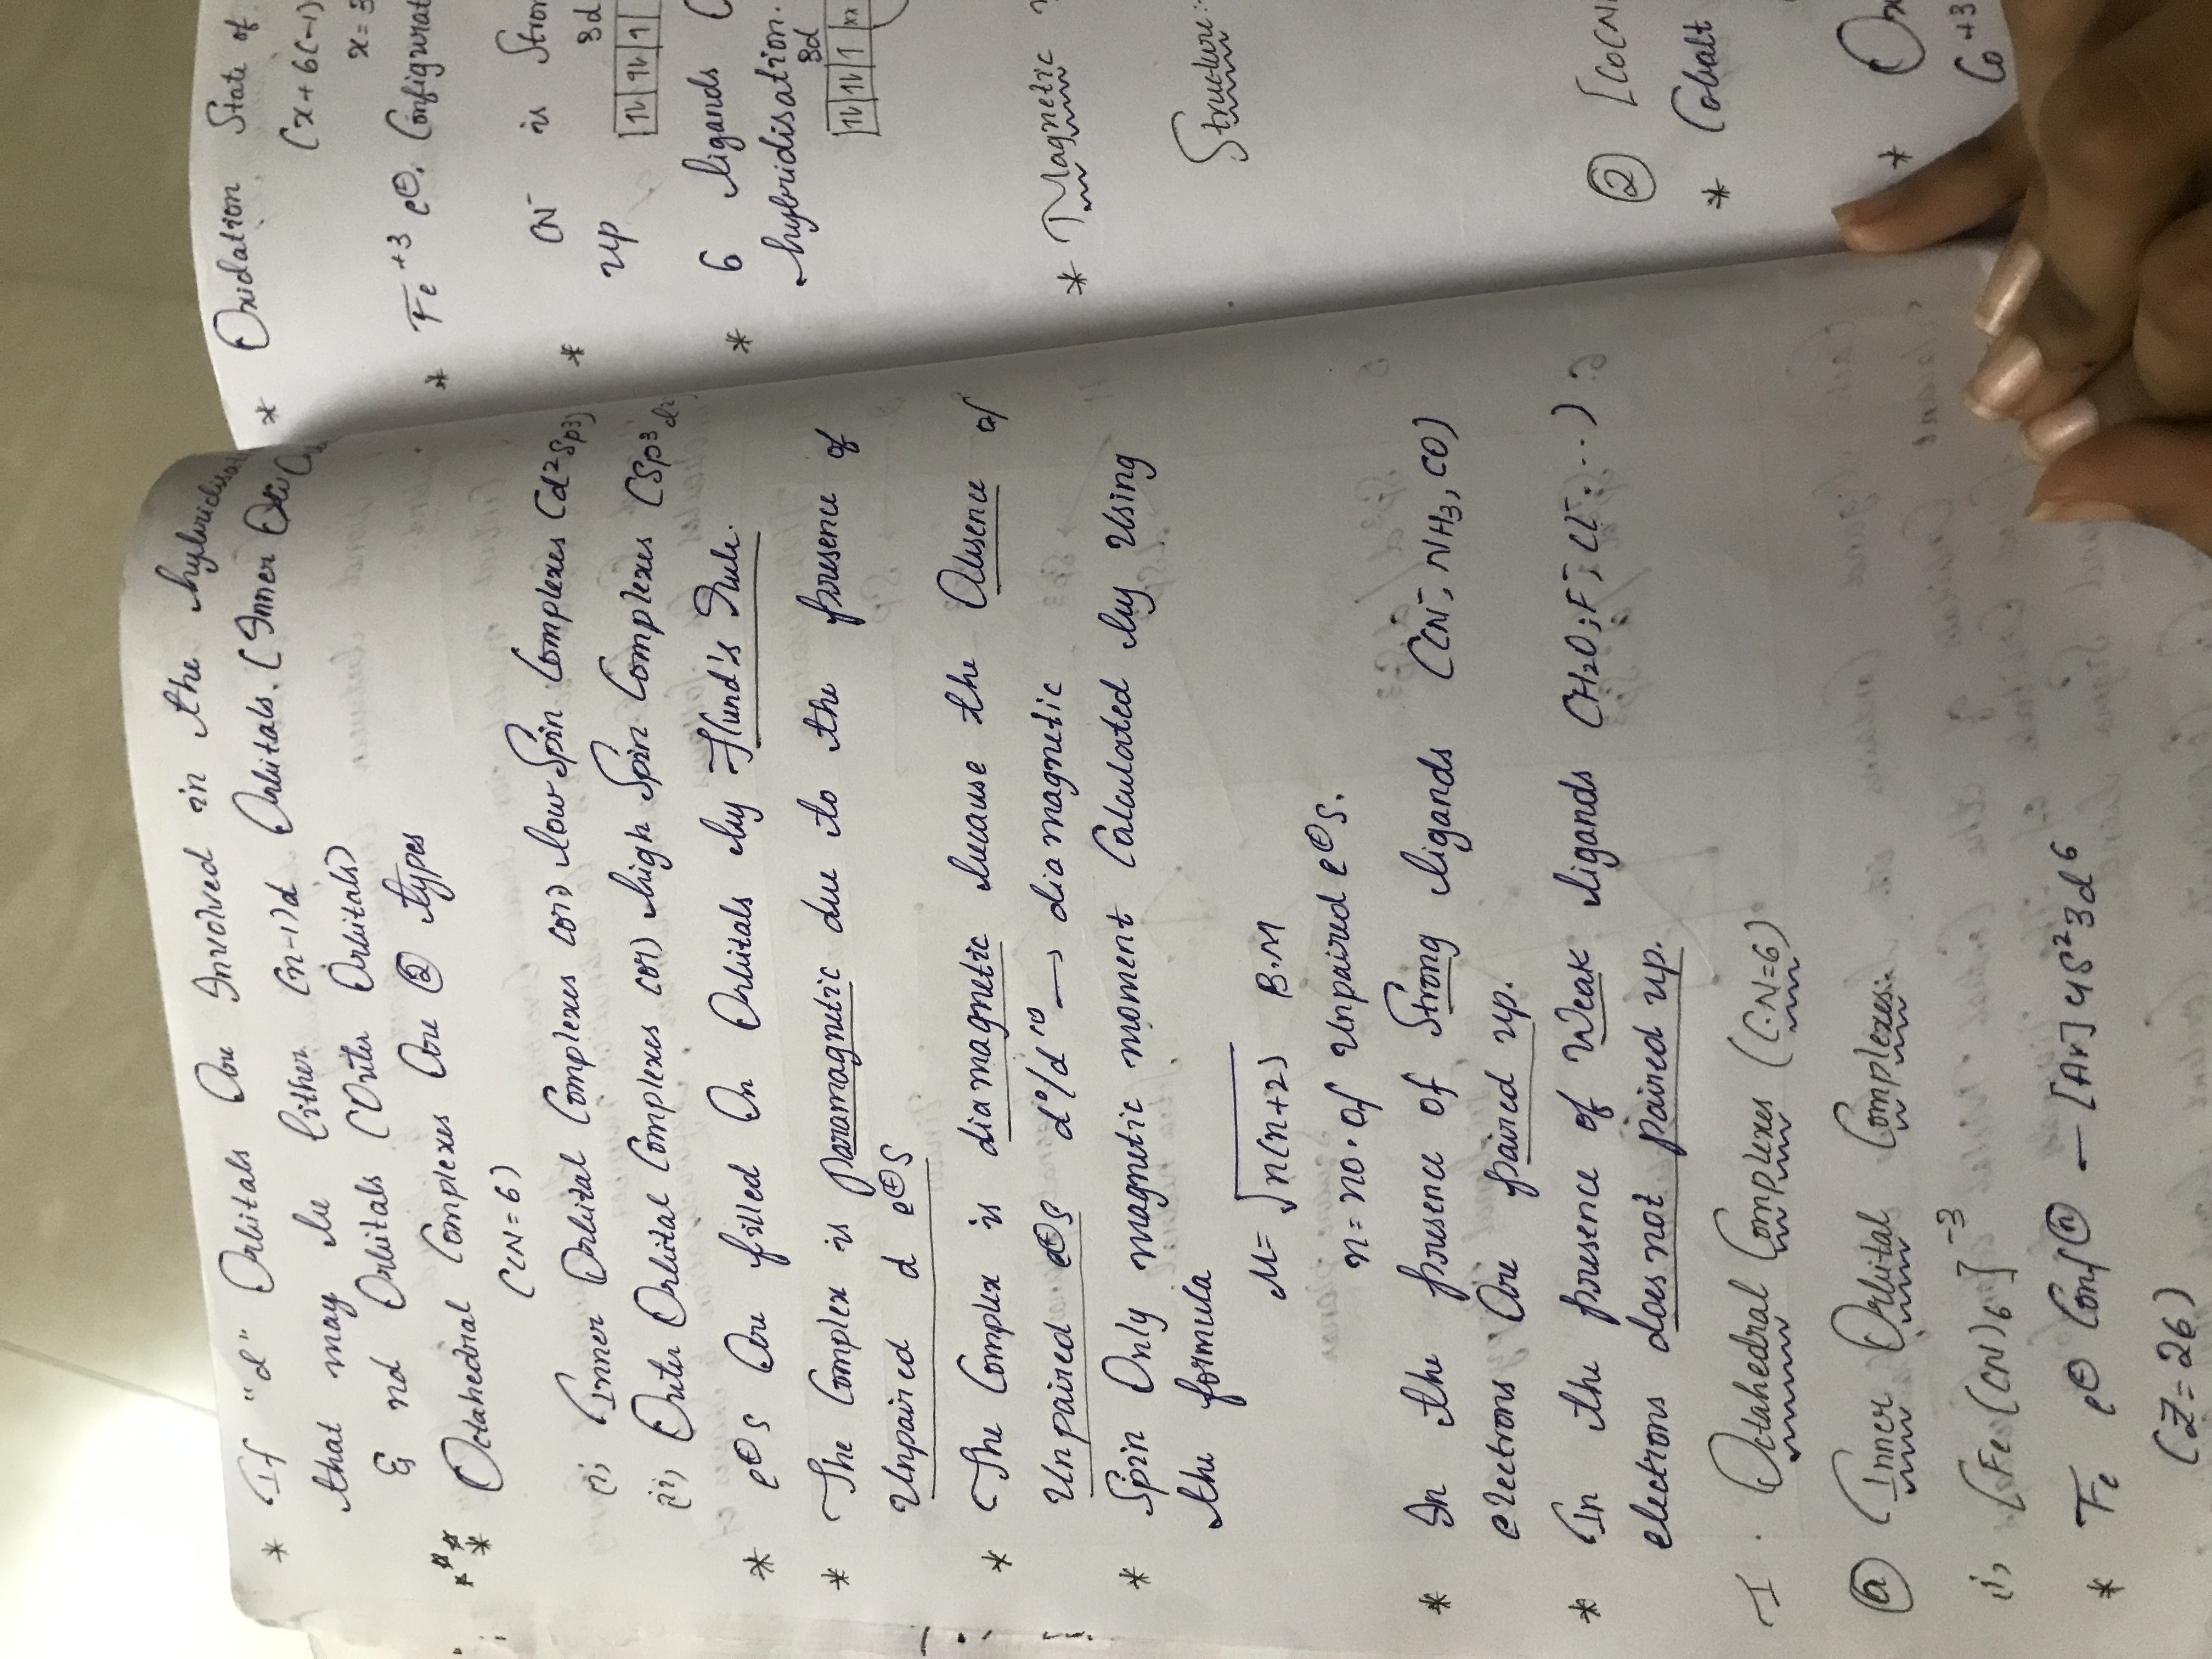 * If "d" Orbitals are Involved in the hybridisat
that may be Either (n-1)d Orbitals. (Inner
& nd Orbitals (Outer Orbitals)
* Octahedral Complexes are ② types
(CN=6)
(i) Inner Orbital Complexes (or) low Spin Complexes (d²sp³)
(ii) Outer Orbital Complexes (or) high Spin Complexes (sp³d²
* e⊖s are filled in Orbitals by Hund's Rule.
* The Complex is Paramagnetic due to the presence of
Unpaired d e⊖s
* The Complex is diamagnetic because the Absence of
Unpaired e⊖s d⁰/d¹⁰ → diamagnetic
* Spin Only magnetic moment Calculated by Using
the formula
μ = √n(n+2) B.M
n = no. of Unpaired e⊖s.
* In the presence of Strong ligands (CN⁻, NH₃, CO)
electrons are paired up.
* In the presence of Weak ligands (H₂O, F⁻, Cl⁻...)
electrons does not paired up.
I. Octahedral Complexes (C.N=6)
ⓐ Inner Orbital Complexes:
i) [Fe(CN)₆]⁻³
* Fe e⊖ Conf ⓝ – [Ar] 4s² 3d⁶
(Z=26)
* Oxidation State of
(x+6(-1)
x=3
* Fe⁺³ e⊖. Configurat
* CN⁻ is Stron
up 3d
* 6 ligands
hybridisation.
3d
* Magnetic
Structure:
② [Co(CN
* Cobalt
* Ox
Co⁺³